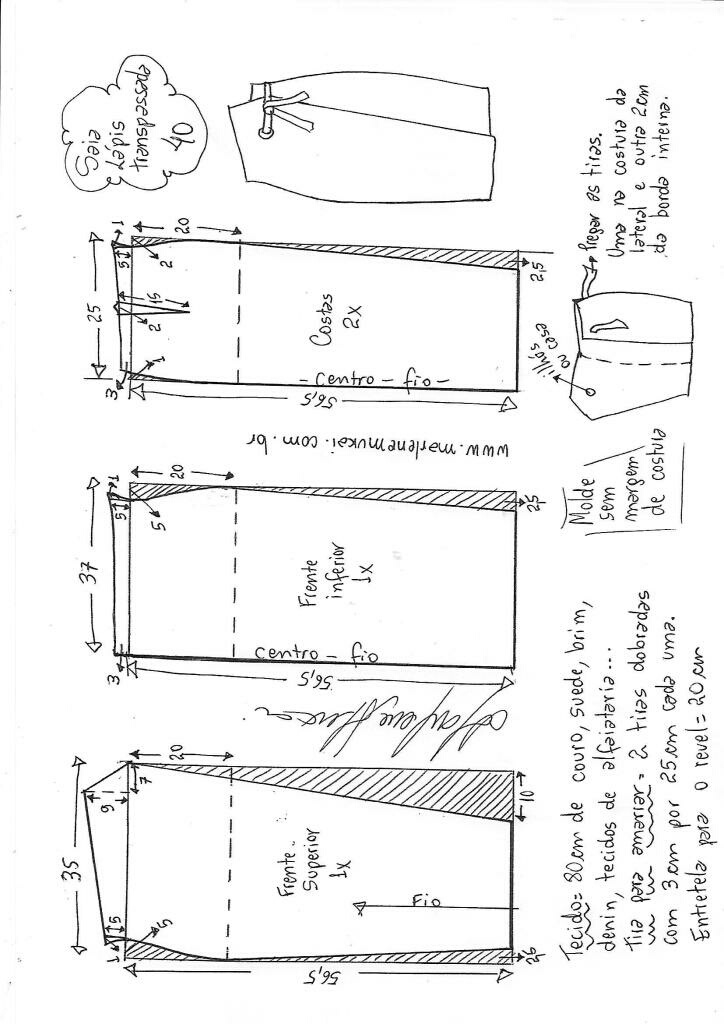 Saia
lápis
transpassada
40
35
1
5
5
9
7
20
Frente
Superior
1x
Fio
56,5
2,5
10
37
3
1
5
5
20
Frente
inferior
1x
centro - fio
56,5
2,5
www.marlenemukai.com.br
25
3
1
2
15
1
5
2
20
Costas
2x
- centro - fio -
56,5
2,5
Pregar as tiras.
Uma na costura da
lateral e outra 2cm
da borda interna.
ilhós
ou casa
Molde
sem
margem
de costura
Tecido= 80cm de couro, suede, brim,
denin, tecidos de alfaiataria...
Tira para amarrar = 2 tiras dobradas
com 3cm por 25cm cada uma.
Entretela para o revel= 20cm